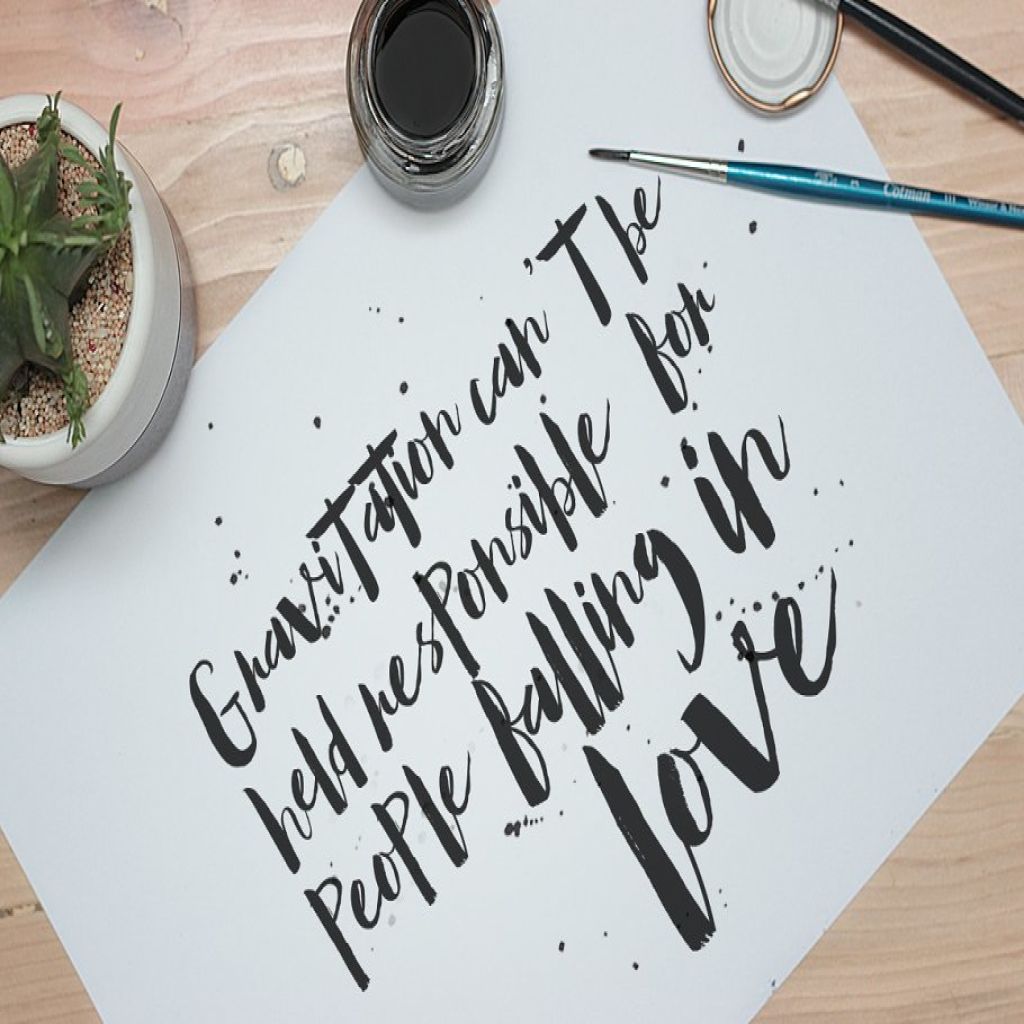 Gravitation can't be
held responsible for
people falling in
love
Cotman 111